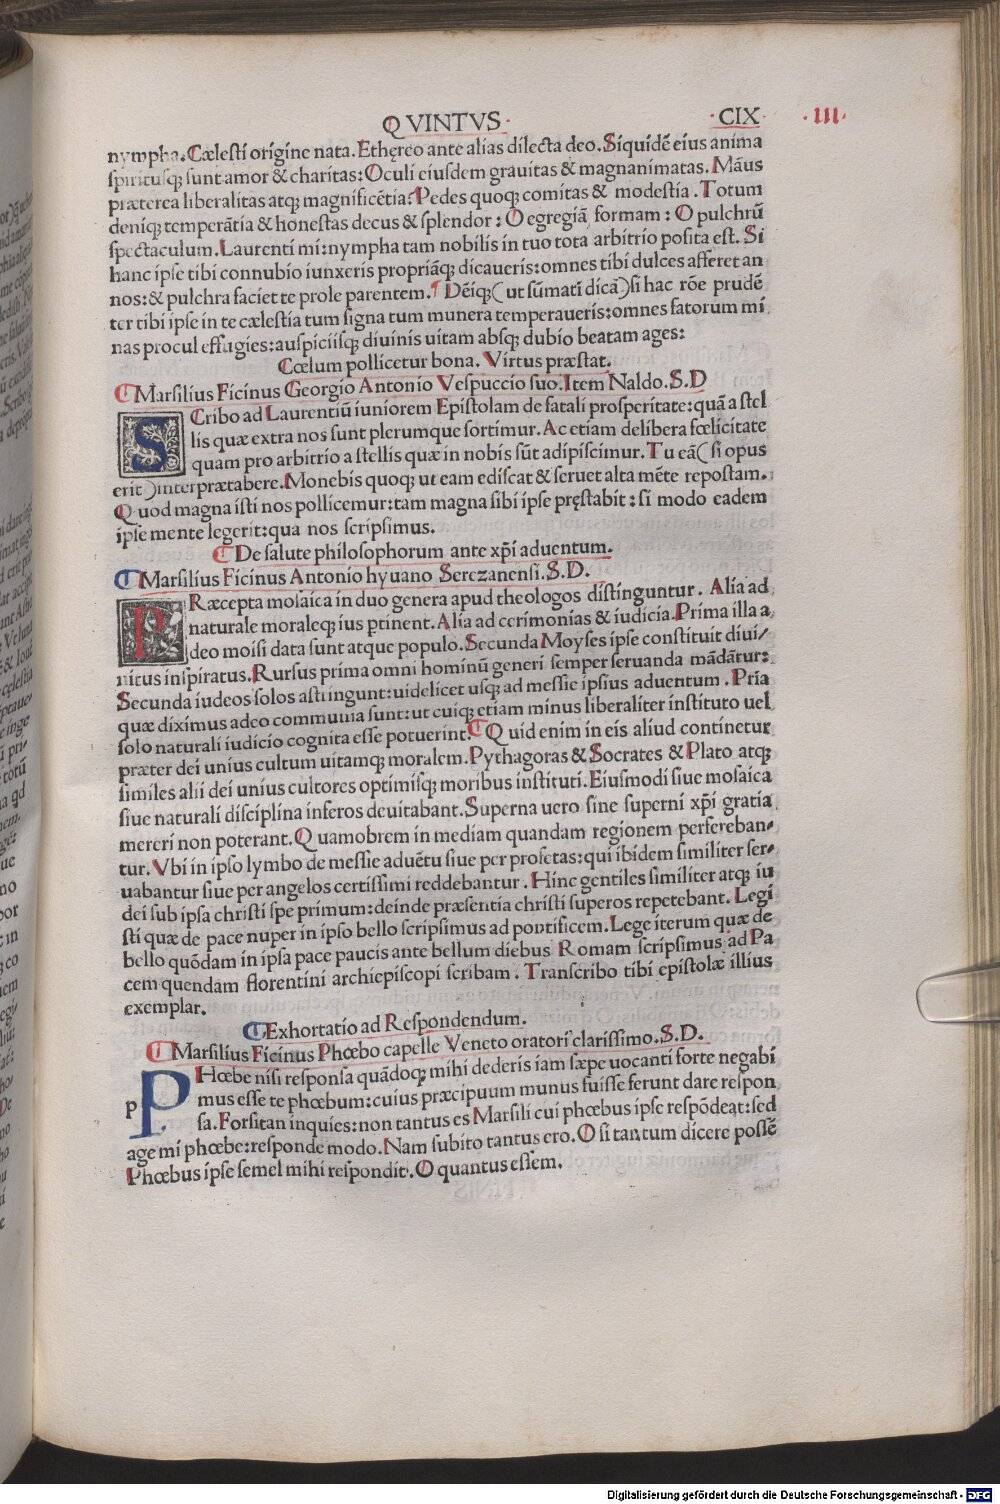 QVINTVS · ·CIX· ·III·
nympha. Cælesti origine nata. Ethęreo ante alias dilecta deo. Siquidē eius anima
spiritusq; sunt amor & charitas: Oculi eiusdem grauitas & magnanimatas. Māus
præterea liberalitas atq; magnificētia: Pedes quoq; comitas & modestia. Totum
deniq; temperātia & honestas decus & splendor: O egregiā formam: O pulchrū
spectaculum. Laurenti mi: nympha tam nobilis in tuo tota arbitrio posita est. Si
hanc ipse tibi connubio iunxeris propriāq; dicaueris: omnes tibi dulces afferet an
nos: & pulchra faciet te prole parentem. Dēiq; (ut sūmatī dicā) si hac rōe prudē
ter tibi ipse in te cælestia tum signa tum munera temperaueris: omnes fatorum mi
nas procul effugies: auspiciisq; diuinis uitam absq; dubio beatam ages:
Cœlum pollicetur bona. Virtus præstat.
Marsilius Ficinus Georgio Antonio Vespuccio suo. Item Naldo. S.D
SCribo ad Laurentiū iuniorem Epistolam de fatali prosperitate: quā a stel
lis quæ extra nos sunt plerumque sortimur. Ac etiam de libera fœlicitate
quam pro arbitrio a stellis quæ in nobis sūt adipiscimur. Tu eā (si opus
erit) interprætabere. Monebis quoq; ut eam ediscat & seruet alta mēte repostam.
Quod magna isti nos pollicemur: tam magna sibi ipse pręstabit: si modo eadem
ipse mente legerit: qua nos scripsimus.
De salute philosophorum ante xp̄i aduentum.
Marsilius Ficinus Antonio hyuano Serezanensi. S.D.
PRæcepta mosaica in duo genera apud theologos distinguntur. Alia ad
naturale moraleq; ius ptinent. Alia ad cerimonias & iudicia. Prima illa a
deo moisi data sunt atque populo. Secunda Moyses ipse constituit diui/
nitus inspiratus. Rursus prima omni hominū generi semper seruanda mādātur:
Secunda iudeos solos astringunt: uidelicet usq; ad messie ipsius aduentum. Pria
quæ diximus adeo communia sunt: ut cuiq; etiam minus liberaliter instituto uel
solo naturali iudicio cognita esse potuerint. Quid enim in eis aliud continetur
præter dei unius cultum uitamq; moralem. Pythagoras & Socrates & Plato atq;
similes alii dei unius cultores optimisq; moribus instituti. Eiusmodi siue mosaica
siue naturali disciplina inferos deuitabant. Superna uero sine superni xp̄i gratia
mereri non poterant. Quamobrem in mediam quandam regionem perfereban-
tur. Vbi in ipso lymbo de messie aduētu siue per profetas: qui ibidem similiter ser-
uabantur siue per angelos certissimi reddebantur. Hinc gentiles similiter atq; iu
dei sub ipsa christi spe primum: deinde præsentia christi superos repetebant. Legi
sti quæ de pace nuper in ipso bello scripsimus ad pontificem. Lege iterum quæ de
bello quōdam in ipsa pace paucis ante bellum diebus Romam scripsimus ad Pa
cem quendam florentini archiepiscopi scribam. Transcribo tibi epistolæ illius
exemplar.
Exhortatio ad Respondendum.
Marsilius Ficinus Phœbo capelle Veneto oratori clarissimo. S.D.
p PHœbe nisi responsa quādoq; mihi dederis iam sæpe uocanti forte negabi
mus esse te phœbum: cuius præcipuum munus fuisse ferunt dare respon
sa. Forsitan inquies: non tantus es Marsili cui phœbus ipse respōdeat: sed
age mi phœbe: responde modo. Nam subito tantus ero. O si tantum dicere possē
Phœbus ipse semel mihi respondit. O quantus essem.
Digitalisierung gefördert durch die Deutsche Forschungsgemeinschaft - DFG